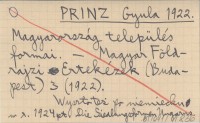 PRINZ Gyula 1922.
Magyarország település
formái. Magyar Föld-
rajzi Értekezések (Buda-
pest) 3 (1922).
Nyomtatás
1924 Die Siedlungsformen Ungarns